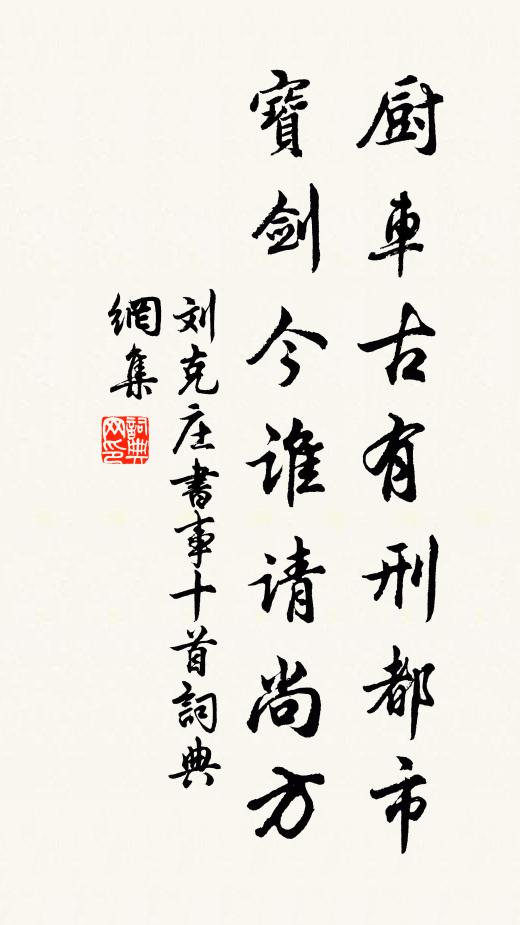 厨車古有刑都市
寶劍今谁请尚方
刘克庄書事十首詞典
網集
詞典网印